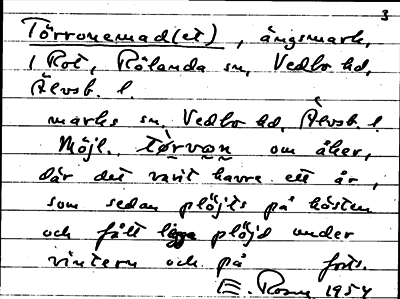 3
Törronemad(et), ängsmark,
1 Rot, Rölanda sn, Vedbo hd,
Älvsb. l.
marks sn, Vedbo hd, Älvsb. l.
Möjl. tòrvǫn om åker,
där det varit havre ett år,
som sedan plöjts på hösten
och fått ligga plöjd under
vintern och på forts.
E. Rosén 1954